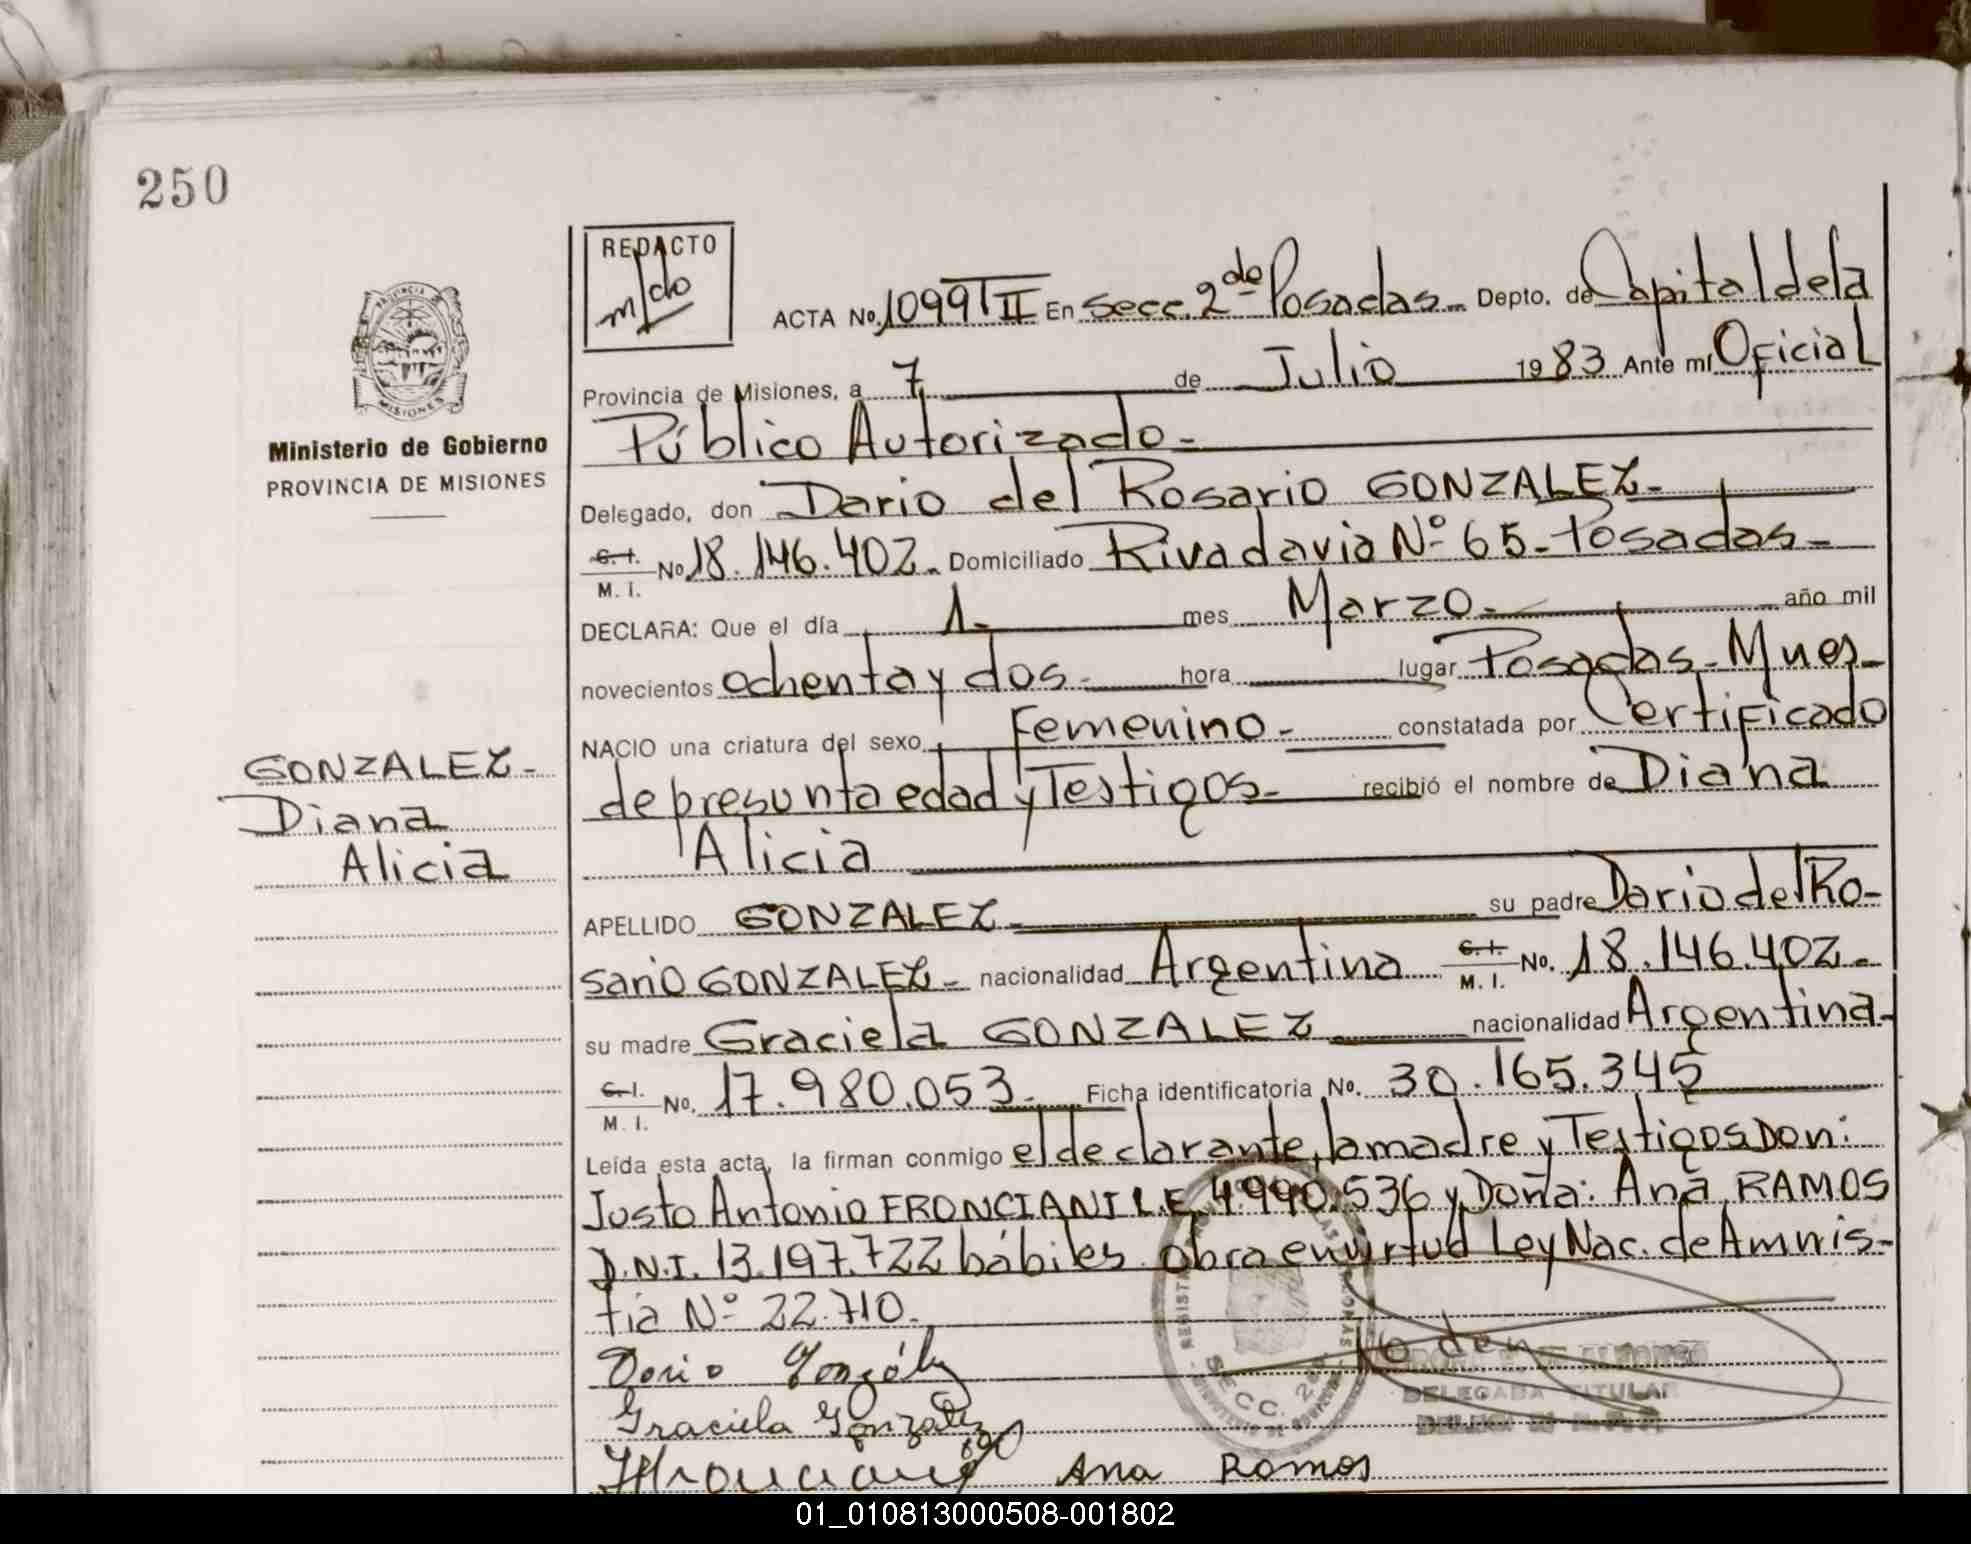 250
REDACTO
ACTA No. 1099 TII En Secc. 2da Posadas - Depto. de Capital de la
Provincia de Misiones, a 7 de Julio 1983 Ante mí Oficial
Público Autorizado -
PROVINCIA
MISIONES
Ministerio de Gobierno
PROVINCIA DE MISIONES
Delegado, don Dario del Rosario GONZALEZ -
C. I.
M. I. No 18.146.402. Domiciliado Rivadavia Nº 65 - Posadas -
DECLARA: Que el día 1 - mes Marzo - año mil
novecientos ochenta y dos - hora lugar Posadas - Mnes -
NACIO una criatura del sexo Femenino - constatada por Certificado
de presunta edad y Testigos - recibió el nombre de Diana
Alicia
GONZALEZ -
Diana
Alicia
APELLIDO GONZALEZ - su padre Dario del Ro-
sario GONZALEZ - nacionalidad Argentina C. I.
M. I. No. 18.146.402 -
su madre Graciela GONZALEZ nacionalidad Argentina -
C. I.
M. I. No. 17.980.053 - Ficha identificatoria No. 30.165.345
Leída esta acta, la firman conmigo el declarante, la madre y Testigos Don:
Justo Antonio FRONCIANI L.E. 4.990.536 y Doña: Ana RAMOS
D.N.I. 13.197.722 hábiles. Obra en virtud Ley Nac. de Amnis-
tia Nº 22.710.
Dario González
Graciela Gonzalez
Ana Ramos
SECC. 2da
DE ALFONSO
DELEGADA TITULAR
01_010813000508-001802